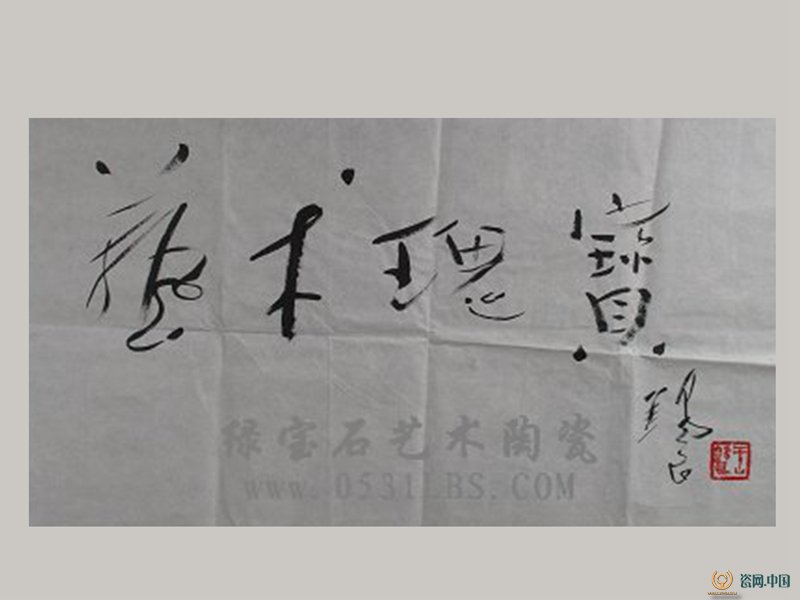 藝术瑰寶
绿宝石艺术陶瓷
www.0531LBS.COM
瓷网.中国